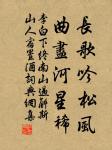 長歌吟松風
曲盡河星稀
李白下終南山過斛斯
山人宿置酒詞典網集